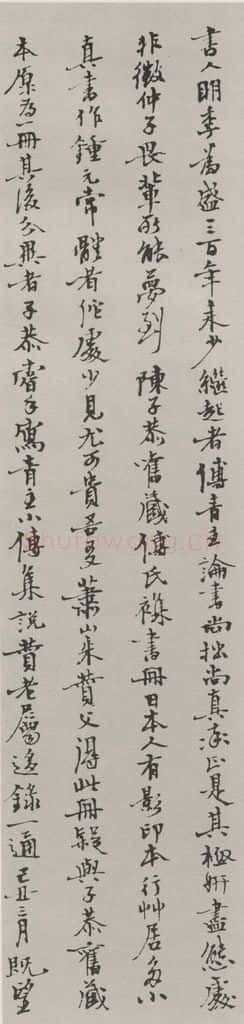 書人明季为盛三百年来少繼起者傅青主論書尚拙尚真率正是其極妍盡態處
非徵仲子畏輩所能夢到 陳子恭舊藏傅氏襍書冊日本人有影印本行艸居多小
真書作鍾元常體者他處少見尤可貴吾友蕭山朱贊父得此冊疑與子恭舊藏
本原为一冊其後分異者子恭曾手寫青主小傳集説贊老屬迻錄一通己丑三月既望